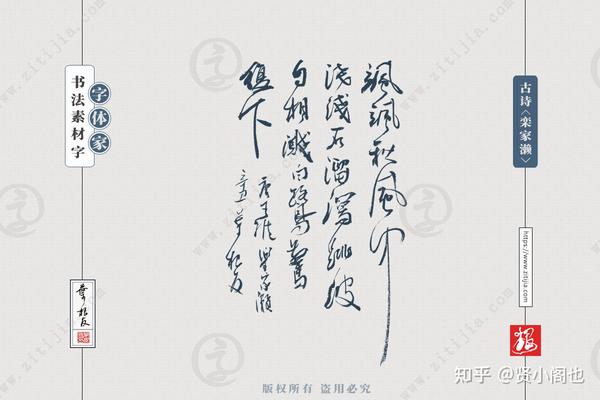 古诗〈栾家濑〉
https://www.zitijia.com
飒飒秋風中
浅浅石溜瀉跳波
自相溅白鹭驚
復下
唐王维栾家濑
辛丑葉根友
字体家
书法素材字
葉根友
版权所有 盗用必究
www.zitijia.com
知乎 @贤小阁也